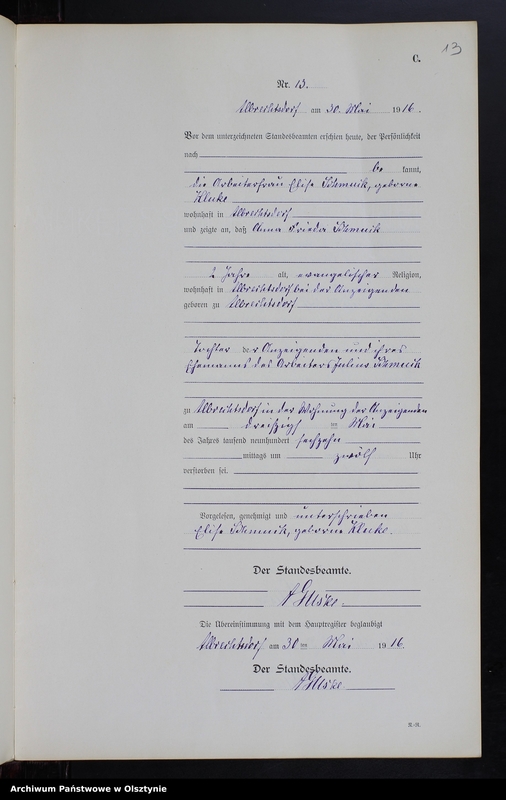 13
C.
Nr. 13.
Albrechtsdorf am 30. Mai 1916.
Vor dem unterzeichneten Standesbeamten erschien heute, der Persönlichkeit
nach
be kannt,
die Arbeiterfrau Elise Schemnik, geborne
Klecke
wohnhaft in Albrechtsdorf
und zeigte an, daß Anna Frieda Schemnik
2 Jahre alt, evangelischer Religion,
wohnhaft in Albrechtsdorf bei der Anzeigenden
geboren zu Albrechtsdorf
Tochter der Anzeigenden und ihres
Ehemanns des Arbeiters Julius Schemnik
zu Albrechtsdorf in der Wohnung der Anzeigenden
am dreißigsten Mai
des Jahres tausend neunhundert sechzehn
mittags um zwölf Uhr
verstorben sei.
Vorgelesen, genehmigt und unterschrieben
Elise Schemnik, geborne Klecke.
Der Standesbeamte.
Die Übereinstimmung mit dem Hauptregister beglaubigt
Albrechtsdorf am 30 ten Mai 1916.
Der Standesbeamte.
Archiwum Państwowe w Olsztynie